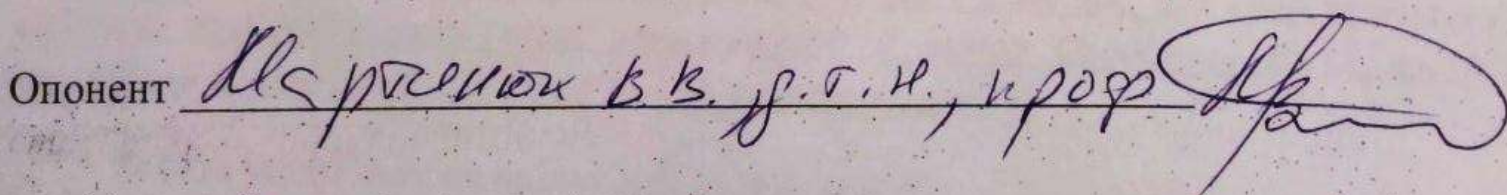 Опонент Мартенюк В.В., д.т.н., проф